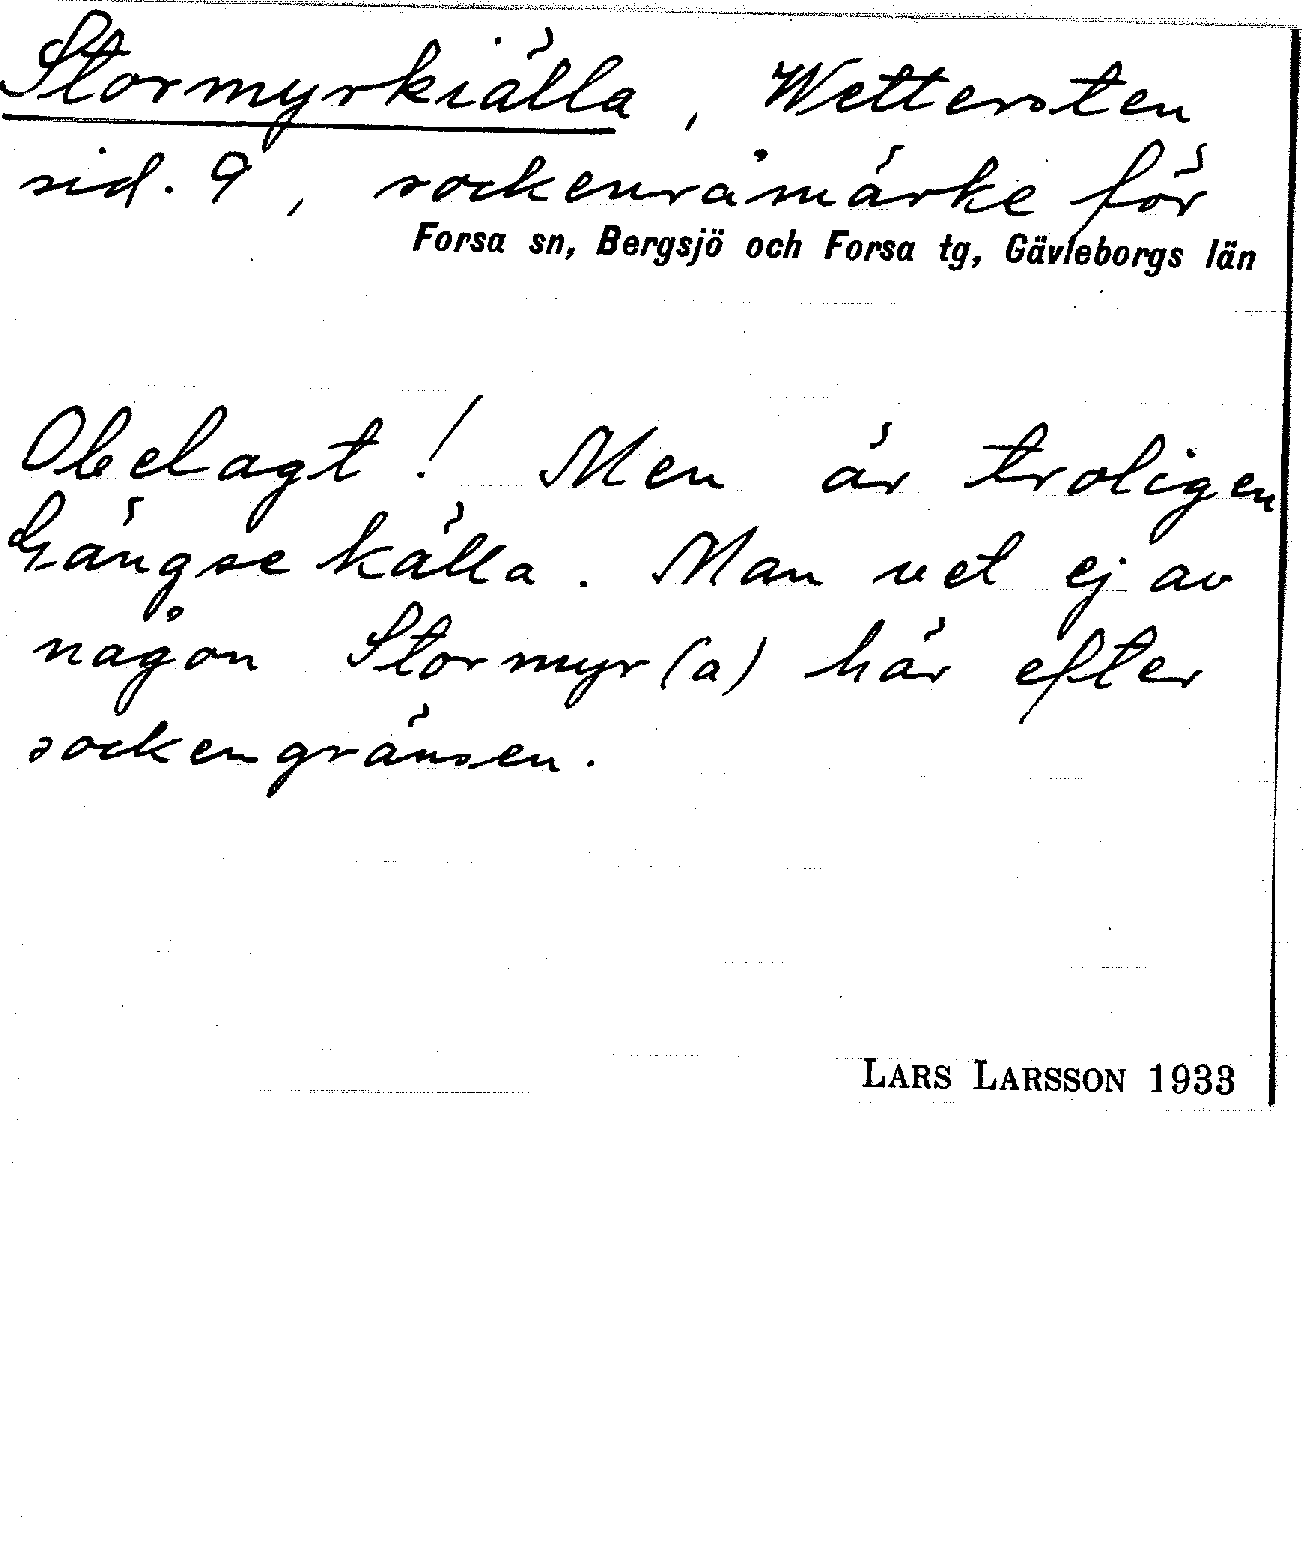 Stormyrkiälla, Wettersten
sid. 9, sockenråmärke för
Forsa sn, Bergsjö och Forsa tg, Gävleborgs län
Obelagt! Men är troligen
Gängsekälla. Man vet ej av
någon Stormyr(a) här efter
sockengränsen.
LARS LARSSON 1933